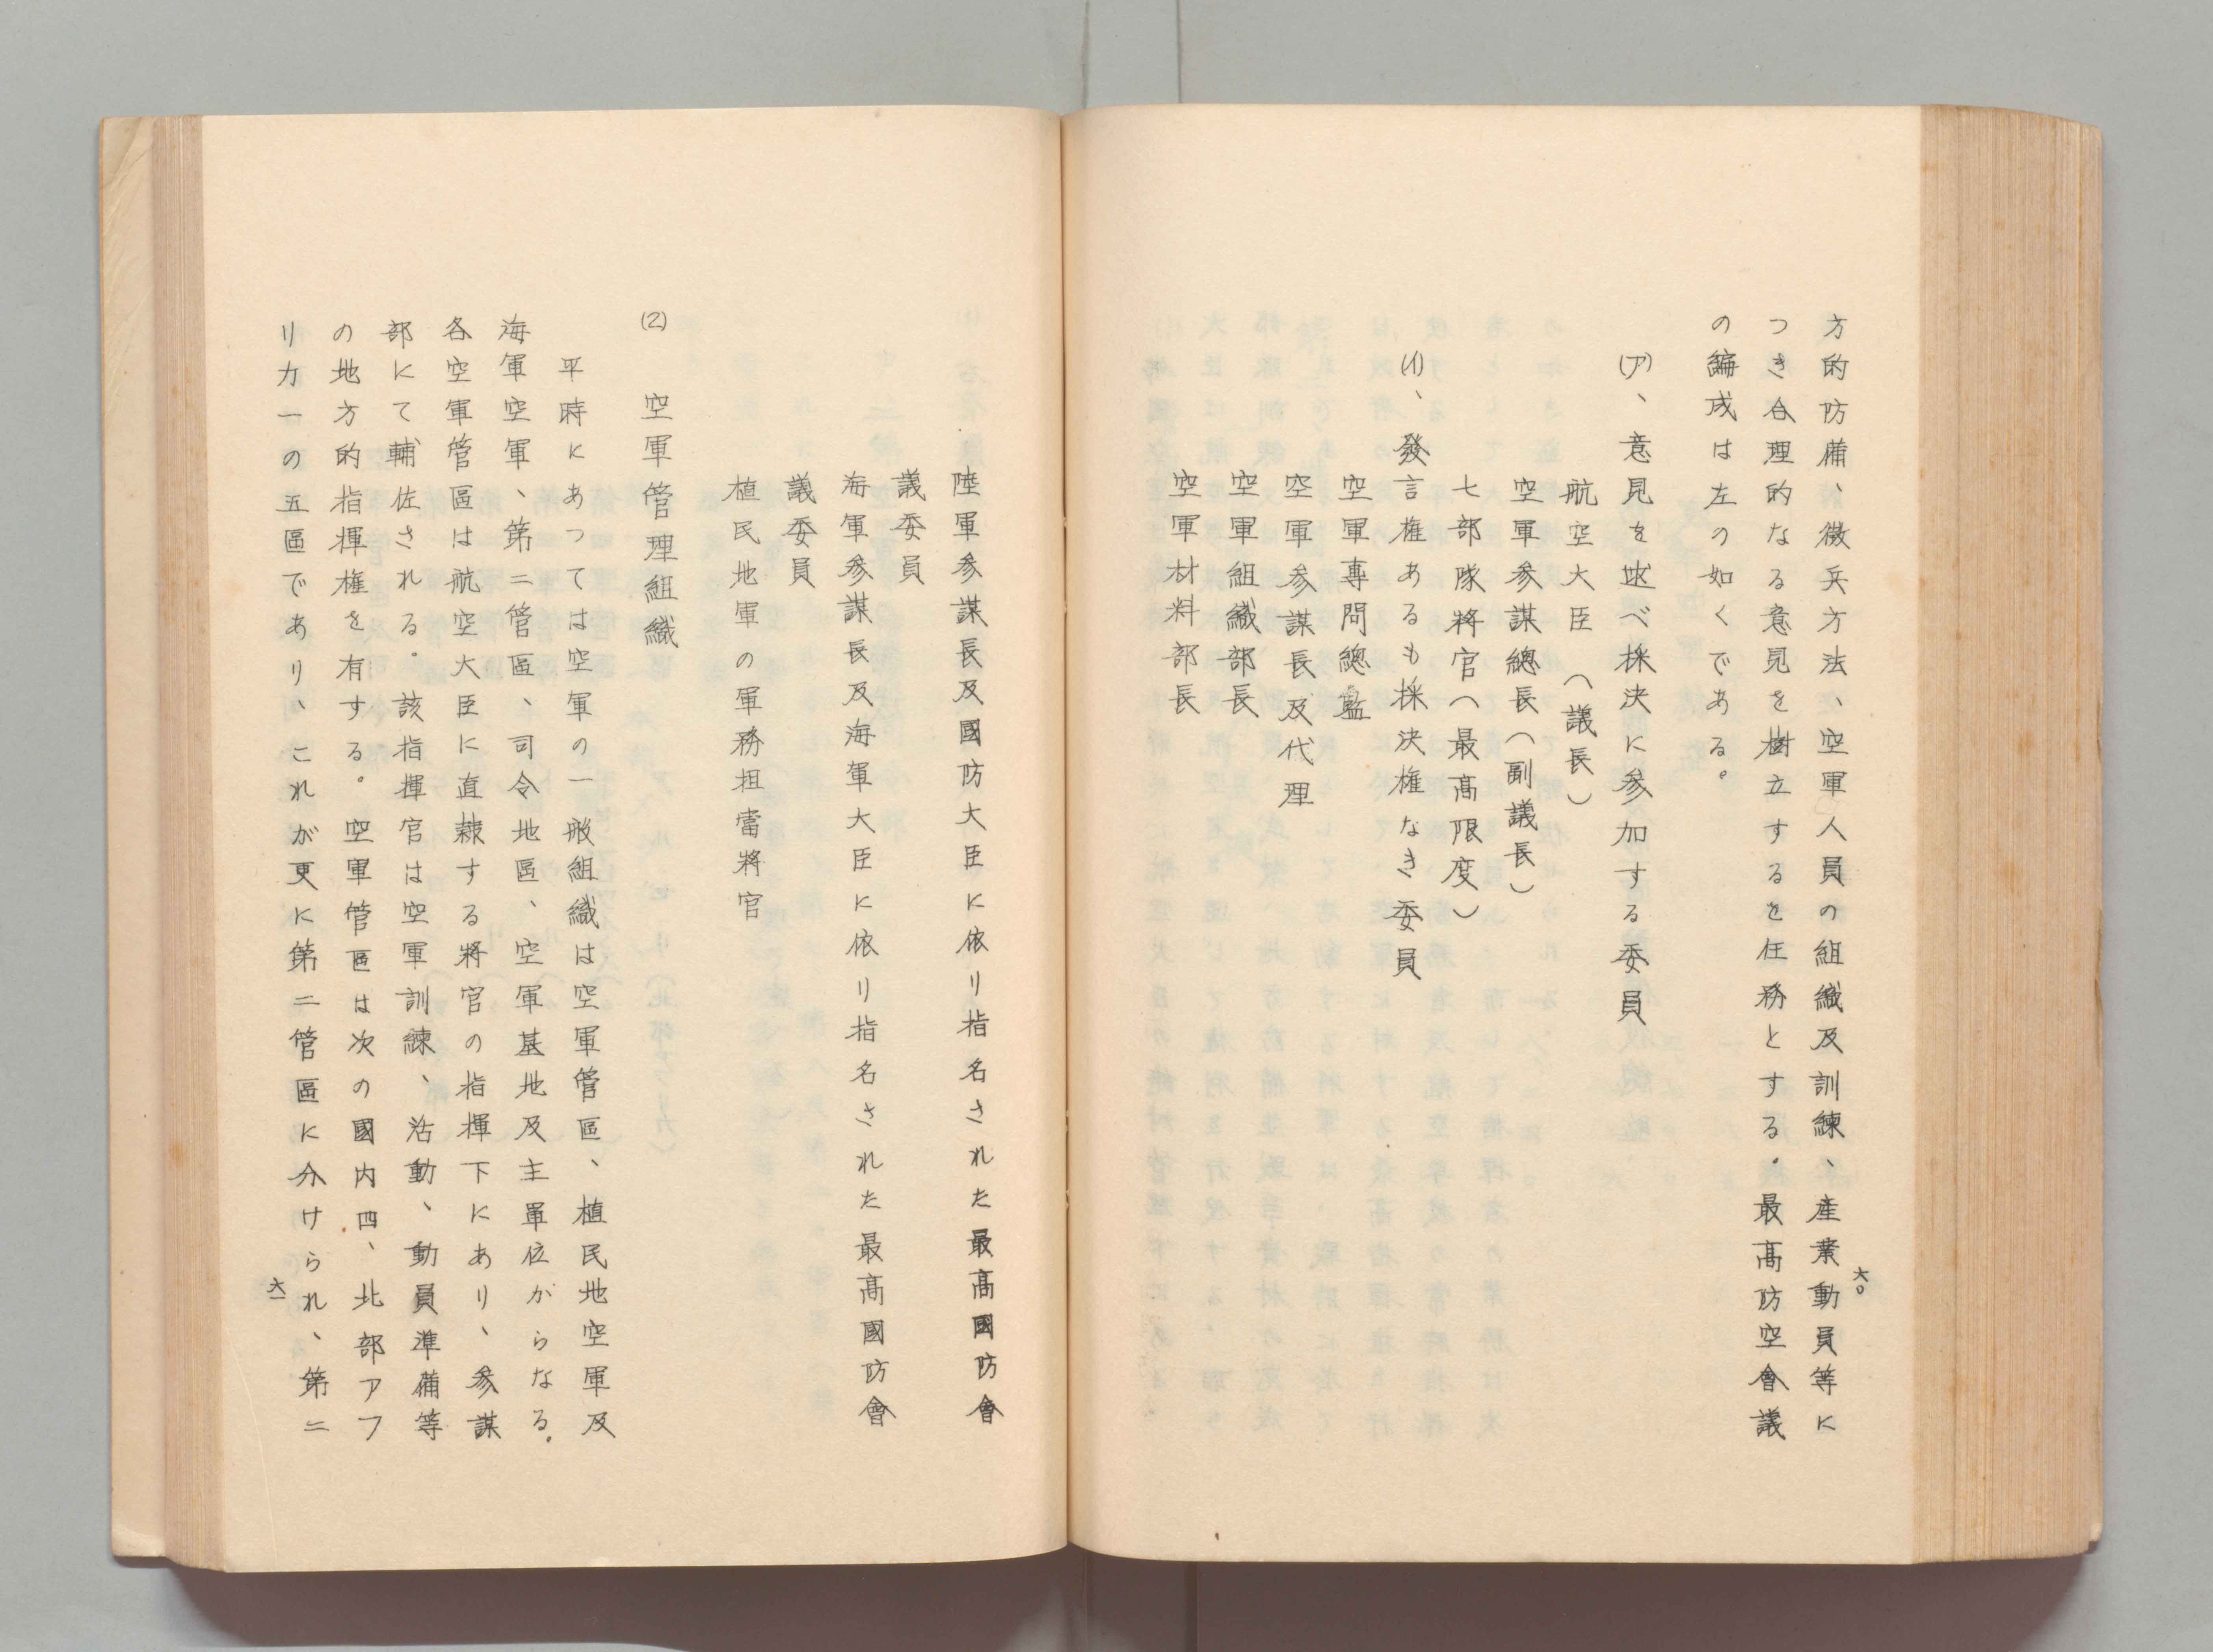 六〇
方的防備、徴兵方法、空軍人員の組織及訓練、産業動員等に
つき合理的なる意見を樹立するを任務とする。最高防空會議
の編成は左の如くである。
(ア)、意見を述べ採決に参加する委員
航空大臣　(議長)
空軍参謀總長(副議長)
七部隊將官(最高限度)
(イ)、發言権あるも採決権なき委員
空軍專問總監
空軍参謀長及代理
空軍組織部長
空軍材料部長
陸軍参謀長及國防大臣に依リ指名された最高國防會
議委員
海軍参謀長及海軍大臣に依リ指名された最高國防會
議委員
植民地軍の軍務担當將官
(2)　空軍管理組織
平時にあつては空軍の一般組織は空軍管區、植民地空軍及
海軍空軍、第二管區、司令地區、空軍基地及主軍位からなる。
各空軍管區は航空大臣に直隷する將官の指揮下にあり、参謀
部にて輔佐される。該指揮官は空軍訓練、活動、動員準備等
の地方的指揮権を有する。空軍管区は次の國内四、北部アフ
リカ一の五區であり、これが更に第二管區に分けられ、第二
六一